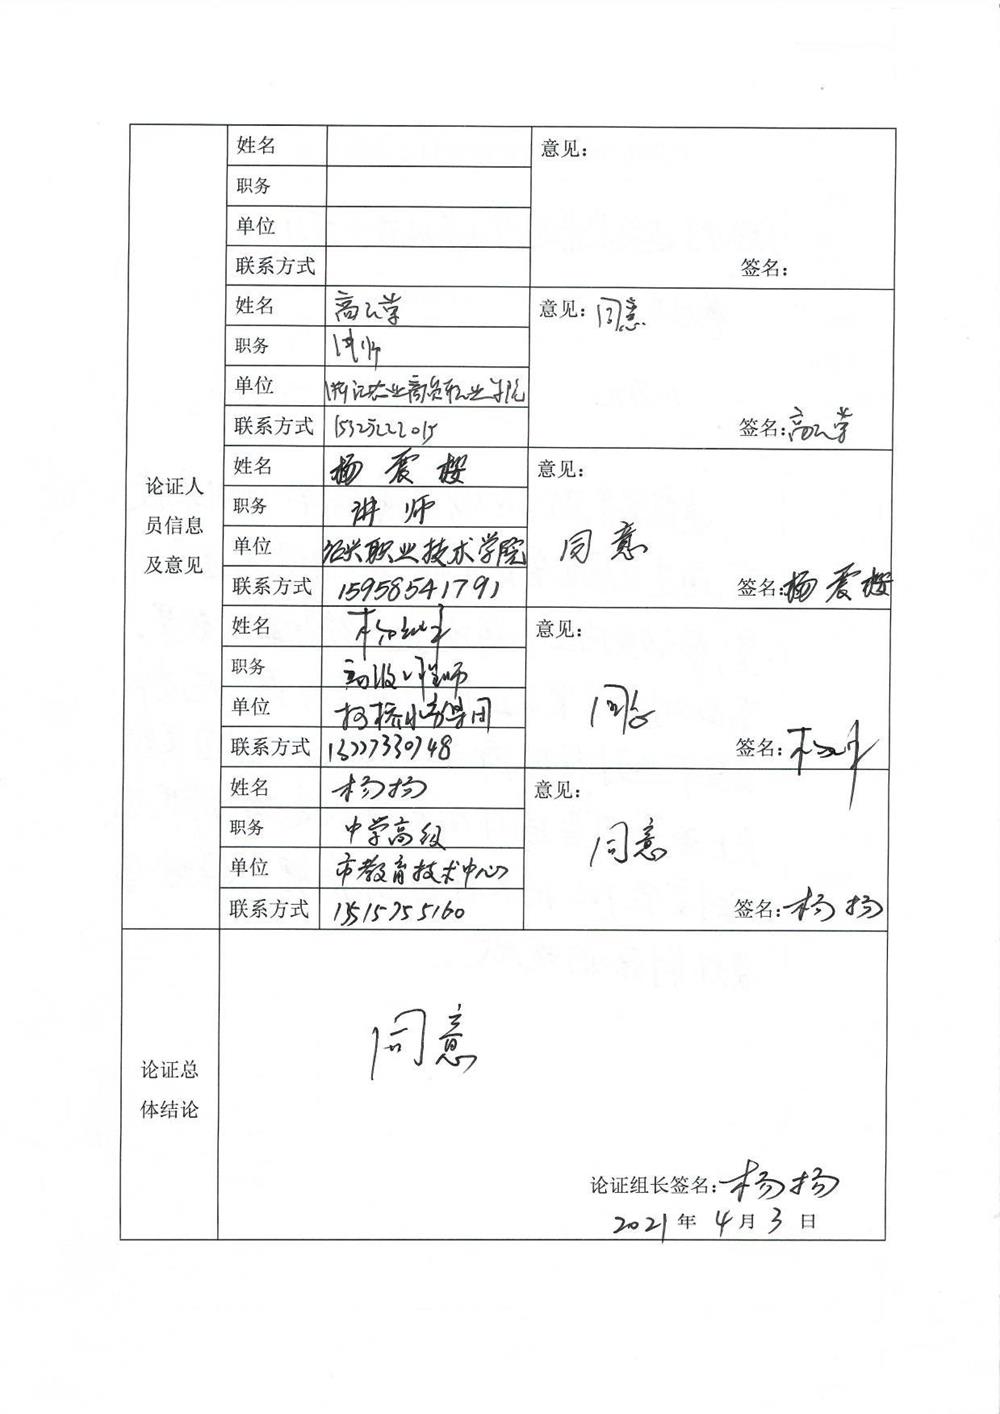 姓名
意见：
职务
单位
联系方式
签名：
姓名
意见：同意
职务 讲师
单位 浙江农业商贸职业学院
联系方式 15325222015
签名：
论证人
员信息
及意见
姓名 杨震樱
意见：
职务 讲师
同意
单位 绍兴职业技术学院
联系方式 15958541791
签名：杨震樱
姓名
意见：
职务 高级工程师
同意
单位 柯桥水务集团
联系方式
签名：
姓名 杨扬
意见：
职务 中学高级
同意
单位 市教育技术中心
联系方式 1515755160
签名：杨扬
论证总
体结论
同意
论证组长签名：杨扬
2021年4月3日